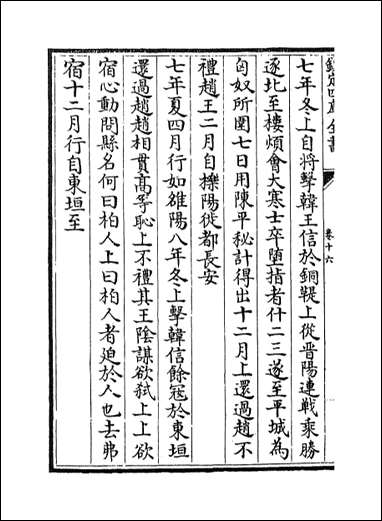 欽定四庫全書
卷十六
七年冬上自將擊韓王信於銅鞮上從晋陽連戰乗勝
逐北至樓煩會大寒士卒墮指者什二三遂至平城為
匈奴所圍七日用陳平秘計得出十二月上還過趙不
禮趙王二月自櫟陽徙都長安
七年夏四月行如雒陽八年冬上擊韓信餘冦於東垣
還過趙趙相貫髙等恥上不禮其王陰謀欲弑上上欲
宿心動問縣名何曰柏人上曰柏人者迫於人也去弗
宿十二月行自東垣至